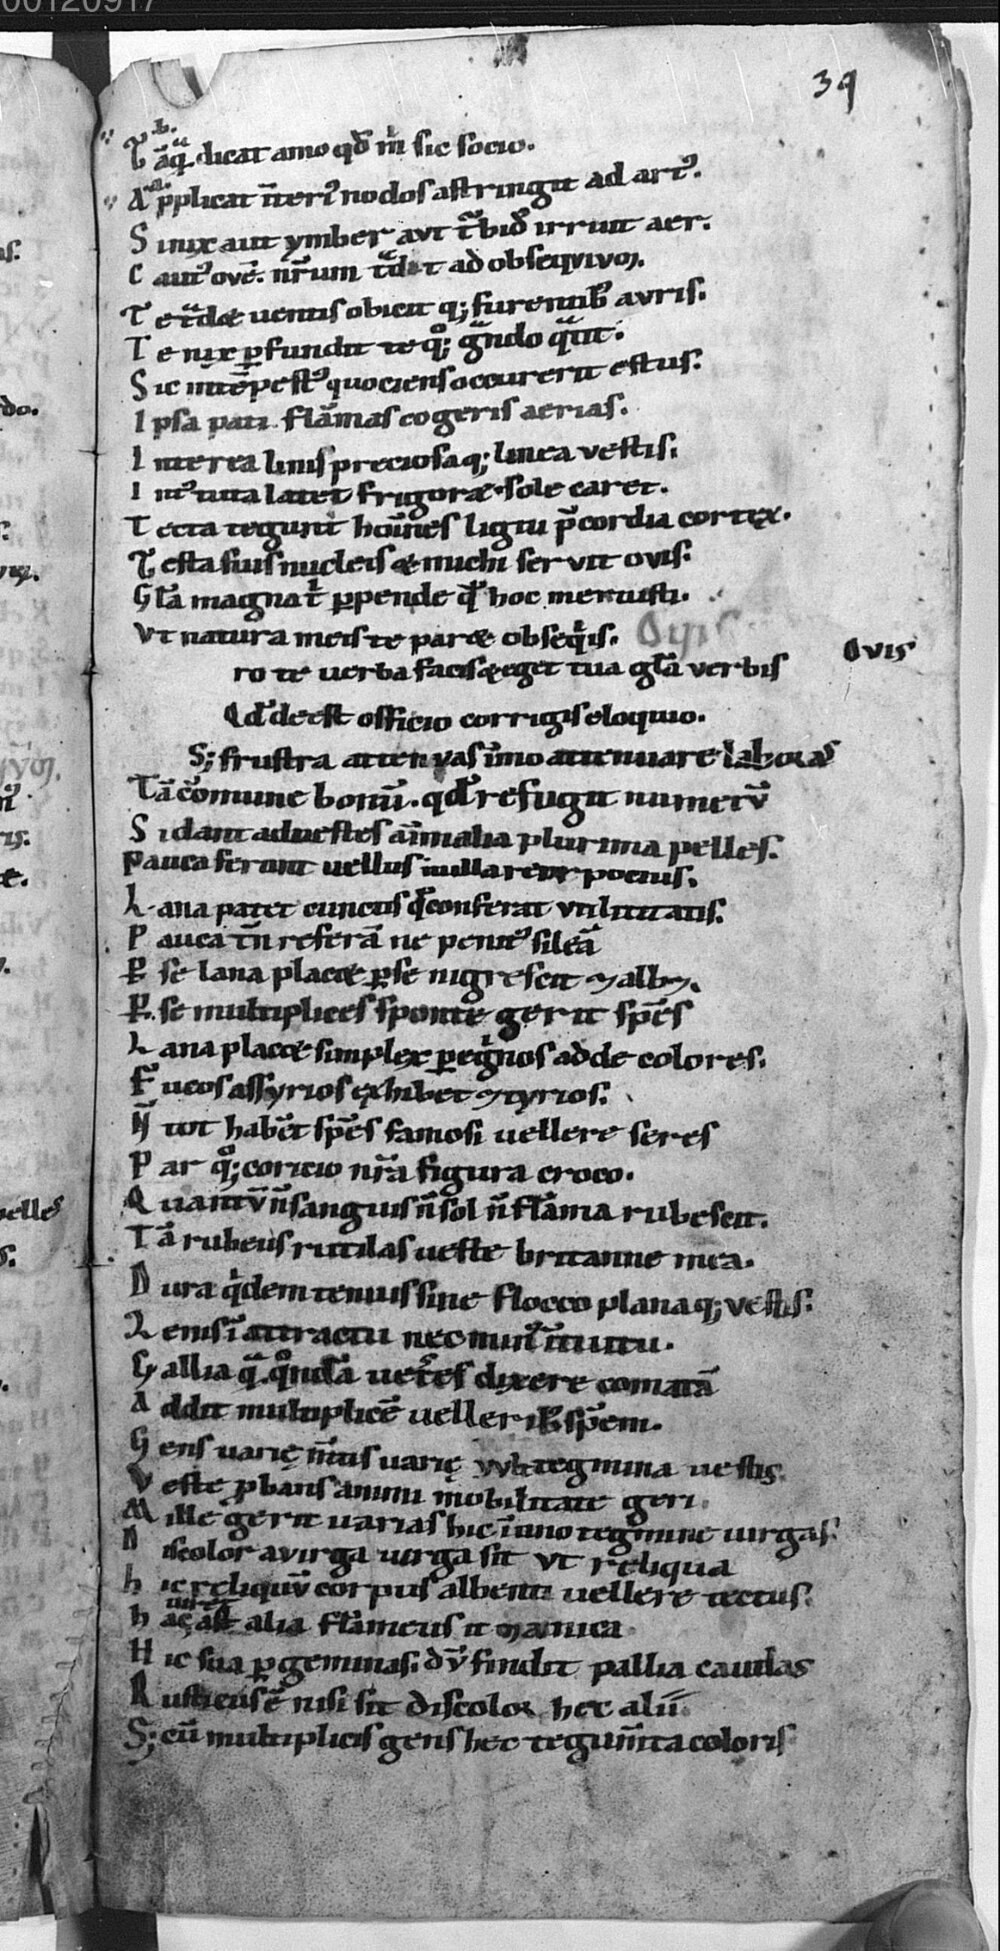 00120917
39
b.
Tāq̄ dicat amo qd̄ m̄ sic socio.
a.
Applicat īteri᷒ nodos astringit ad art᷒.
Si nix aut ymber aut t̄bid᷒ irruit aer.
Caut᷒ oue᷒. nr̄um t̄dit ad obsequiū.
Te t̄dæ uentis obicit q; furentib᷒ auris.
Te nix ꝑfundit te qͦ; gᷓndo qᷓtit.
Sic intēpest᷒ quociens occurerit estus.
Ipsa pati flāmas cogeris aerias.
Interea linis preciosaq; linea uestis.
Int᷒ tuta latet frigoræ sole caret.
Tecta tegunt hoīnes ligni p̄cordia cortex.
Testa suis nucleis & michi seruit ouis.
Gl̄a magna t̄ ꝑpende qd̄ hoc meruisti.
Vt natura meis te paræ obseqͥis. Ouis
Ouis
ro te uerba facis & eget tua gl̄a uerbis
Qd̄ deest officio corrigis eloquio.
S; frustra attenuas īmo attenuare laboras
Tā cōmune bonū. qd̄ refugit numerū
Si dant aduestes aīmalia plurima pelles.
Pauca ferunt uellus nulla reor pocius.
Lana patet cunctis qd̄ conferat utilitatis.
Pauca tn̄ referā ne penit᷒ sileā
Ꝑ se lana placæ ꝑ se nigrescit & alb᷒.
Ꝑ se multiplices sponte gerit sp̄es
Lana placæ simplex ꝑegͥnos adde colores.
Fucos assyrios exhibet & tyrios.
N̄ tot habēt sp̄es famosi uellere seres
Par qͦ; coricio nr̄a figura croco.
Quamtū n̄ sanguis n̄ sol n̄ flāma rubescit.
Tā rubeus rutilas ueste britanne mea.
Dura qͥdem tenuis sine flocco planaq; uestis.
Lenis ī attractu nec min᷒ ītuitu.
Gallia qᷓ qͦndā uet̄es dixere comatā
Addit multiplicē uellerib᷒ sp̄em.
Gens uarię m̄tis uarię tegmina uestis
Veste ꝓbans animi mobilitate geri.
Mille gerit uarias hic īuno tegmine uirgas
Discolor a uirga uirga sit ut reliqua
hic reliquū corpus albenti uellere tectus.
uiret
hac ast alia flāmeus it manica
Hic sua ꝑ geminas dū findit pallia caudas
Rusticus ē nisi sit discolor hec alii
S; cū multiplicis gens hec tegum̄ta coloris